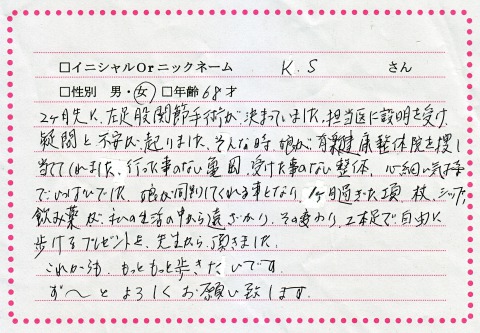 □イニシャルOrニックネーム K.S さん
□性別 男・女 □年齢 68才
2ヶ月先に、左足股関節手術が決まっていました。担当医に説明を受け、
疑問と不安が起りました。そんな時、娘が有親健康整体院を捜し
当ててくれました。行った事のない亀岡、受けた事のない整体、心細い気持
でいっぱいでした。娘が同行してくれる事となり、1ヶ月過ぎた頃、杖、シップ、
飲み薬が、私の生活の中から遠ざかり、その変わり、2本足で自由に
歩けるプレゼントを、先生から頂きました。
これからも、もっともっと歩きたいです。
ず〜とよろしくお願い致します。